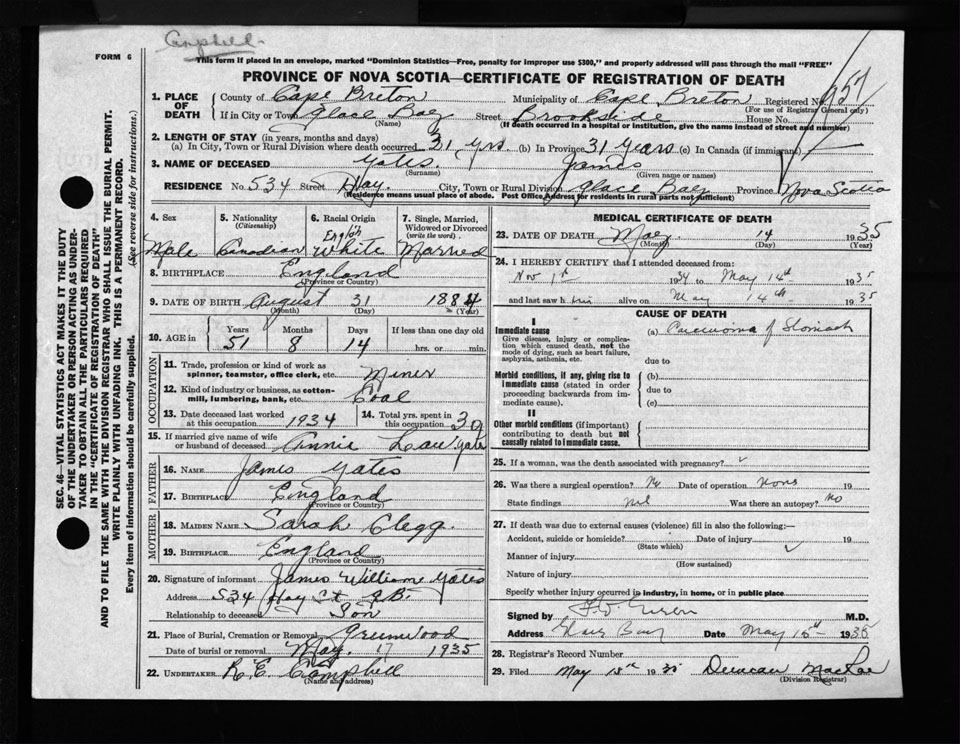 Campbell
FORM 6
This form if placed in an envelope, marked "Dominion Statistics—Free, penalty for improper use $300," and properly addressed will pass through the mail "FREE"
PROVINCE OF NOVA SCOTIA—CERTIFICATE OF REGISTRATION OF DEATH
SEC. 46—VITAL STATISTICS ACT MAKES IT THE DUTY
OF THE UNDERTAKER OR PERSON ACTING AS UNDER-
TAKER TO OBTAIN ALL THE PARTICULARS REQUIRED
IN THE "CERTIFICATE OF REGISTRATION OF DEATH"
AND TO FILE THE SAME WITH THE DIVISION REGISTRAR WHO SHALL ISSUE THE BURIAL PERMIT.
WRITE PLAINLY WITH UNFADING INK. THIS IS A PERMANENT RECORD.
Every item of information should be carefully supplied. (See reverse side for instructions.)
1. PLACE OF DEATH County of Cape Breton Municipality of Cape Breton Registered No. 957
(For use of Registrar General only)
If in City or Town Glace Bay Street Brookside House No.
(Name) (If death occurred in a hospital or institution, give the name instead of street and number)
2. LENGTH OF STAY (in years, months and days)
(a) In City, Town or Rural Division where death occurred 31 yrs. (b) In Province 31 Years (c) In Canada (if immigrant)
3. NAME OF DECEASED Yates. James
(Surname) (Given name or names)
RESIDENCE No. 534 Street Hay. City, Town or Rural Division Glace Bay Province Nova Scotia
(Residence means usual place of abode. Post Office Address for residents in rural parts not sufficient)
4. Sex 5. Nationality (Citizenship) 6. Racial Origin 7. Single, Married, Widowed or Divorced (write the word)
Male Canadian English White Married
8. BIRTHPLACE England
(Province or Country)
9. DATE OF BIRTH August 31 1884
(Month) (Day) (Year)
10. AGE in Years Months Days If less than one day old
51 8 14 hrs. or min.
OCCUPATION
11. Trade, profession or kind of work as spinner, teamster, office clerk, etc. Miner
12. Kind of industry or business, as cotton-mill, lumbering, bank, etc. Coal
13. Date deceased last worked at this occupation 1934 14. Total yrs. spent in this occupation 30
15. If married give name of wife or husband of deceased Annie Yates
FATHER
16. NAME James Yates
17. BIRTHPLACE England
MOTHER
18. MAIDEN NAME Sarah Clegg.
19. BIRTHPLACE England
(Province or Country)
20. Signature of informant James William Yates
Address 534 Hay St G.B.
Relationship to deceased Son
21. Place of Burial, Cremation or Removal Greenwood
Date of burial or removal May 17 1935
22. UNDERTAKER R.E. Campbell
(Name and address)
MEDICAL CERTIFICATE OF DEATH
23. DATE OF DEATH May 14 1935
(Month) (Day) (Year)
24. I HEREBY CERTIFY that I attended deceased from:
Nov 1st 1934 to May 14th 1935
and last saw him alive on May 14th 1935
CAUSE OF DEATH
I
Immediate cause (a) Carcinoma of Stomach
Give disease, injury or complica-
tion which caused death, not the
mode of dying, such as heart failure,
asphyxia, asthenia, etc. due to
Morbid conditions, if any, giving rise to (b)
immediate cause (stated in order due to
proceeding backwards from im-
mediate cause). (c)
II
Other morbid conditions (if important)
contributing to death but not
causally related to immediate cause.
25. If a woman, was the death associated with pregnancy?
26. Was there a surgical operation? No Date of operation None 19
State findings nil Was there an autopsy? No
27. If death was due to external causes (violence) fill in also the following:—
Accident, suicide or homicide? Date of injury 19
(State which)
Manner of injury
(How sustained)
Nature of injury
Specify whether injury occurred in industry, in home, or in public place
Signed by M.D.
Address Glace Bay Date May 15th 1935
28. Registrar's Record Number
29. Filed May 15th 1935 Duncan MacRae
(Division Registrar)